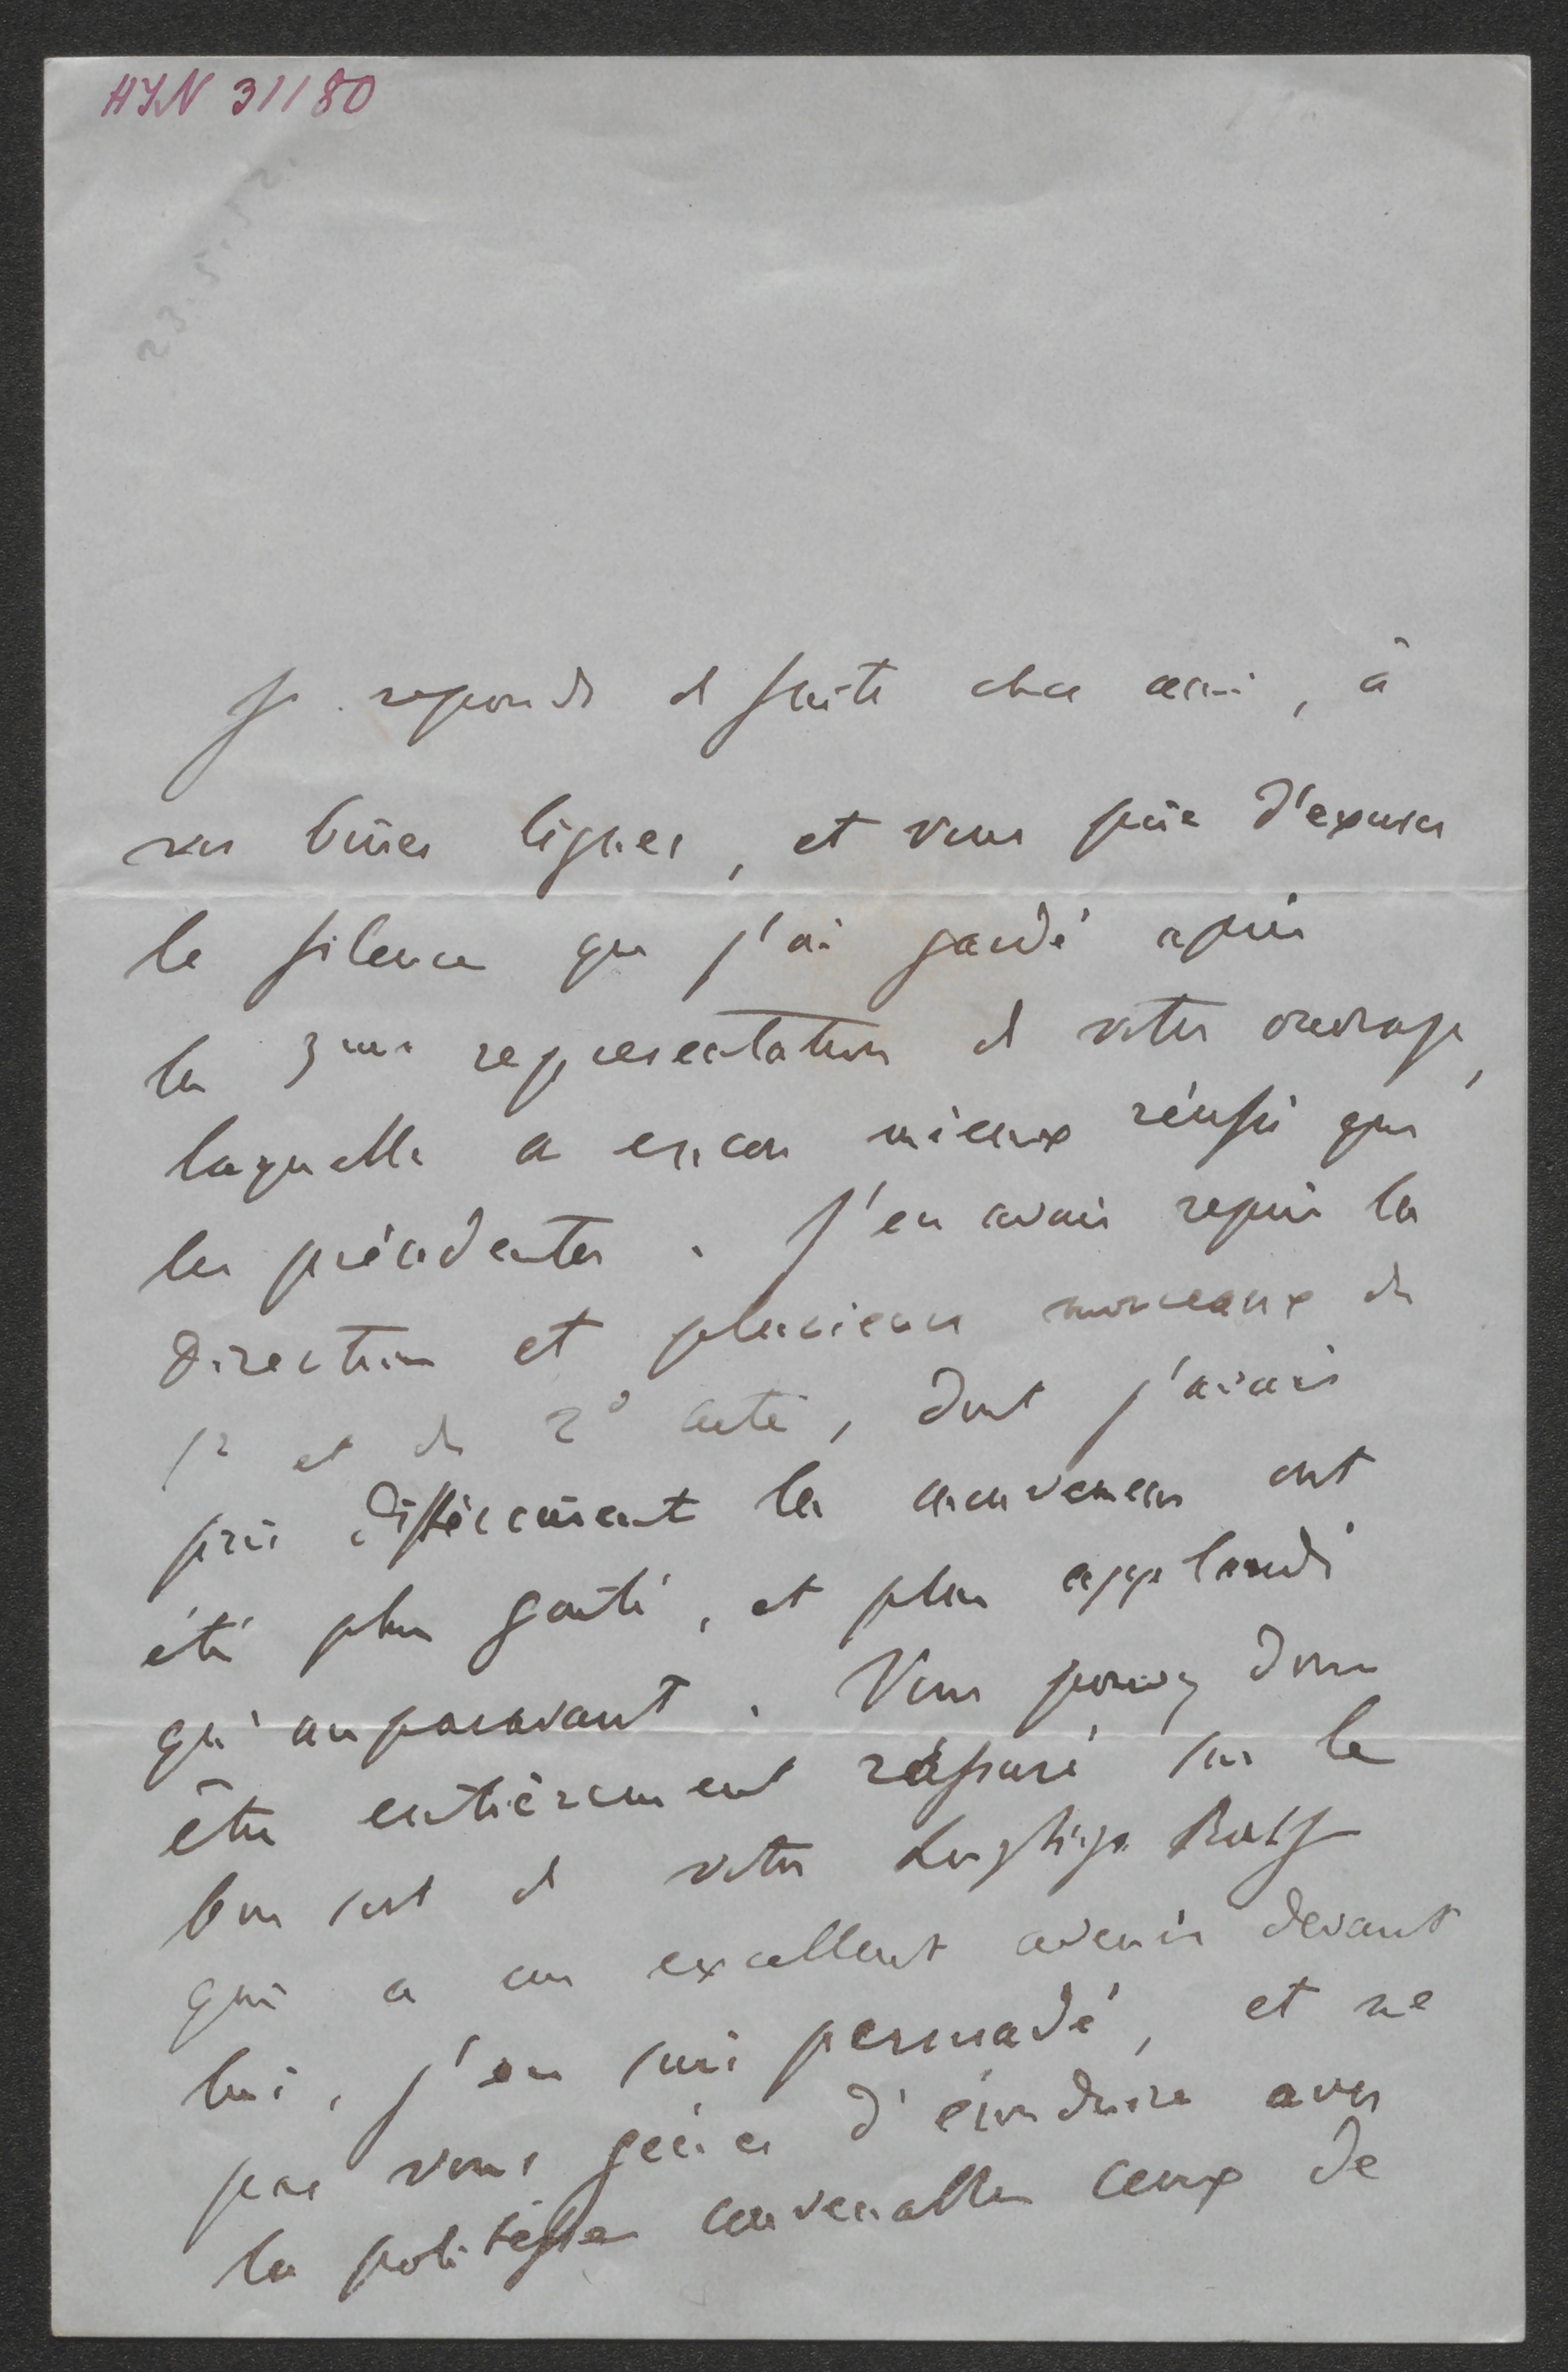 HJN 31180
23.5.52.
Je reponds de suite cher ami, à
vos lignes, et vous prie d'excuser
le silence que j'ai gardé après
la 3me representation de votre ouvrage,
laquelle a encore mieux réussi que
les précédentes. J'en avais repris la
direction et plusieurs morceaux du
1r et du 2d acte, dont j'avais
pris différemment les mouvemens ont
été plus gouté, et plus applaudi
qu'auparavant. Vous pouvez donc
être entièrement rassuré sur le
bon sort de votre
qui a un excellent avenir devant
lui, j'en suis persuadé, et ne
pas vous gêner d'éconduire avec
la politesse convenable ceux de